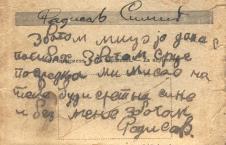 Радисав Симић
Збогом мили ја данас
погибох збогом Срце
последња ми мисао на
тебе буди сретна сине
и без мене збогом
Радисав.